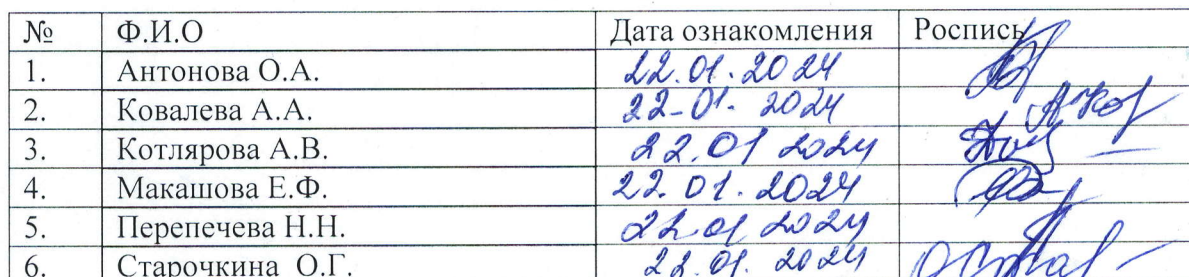 № Ф.И.О Дата ознакомления Роспись
1. Антонова О.А. 22.01.2024
2. Ковалева А.А. 22-01-2024
3. Котлярова А.В. 22.01 2024
4. Макашова Е.Ф. 22.01.2024
5. Перепечева Н.Н. 22.01 2024
6. Старочкина О.Г. 22.01.2024